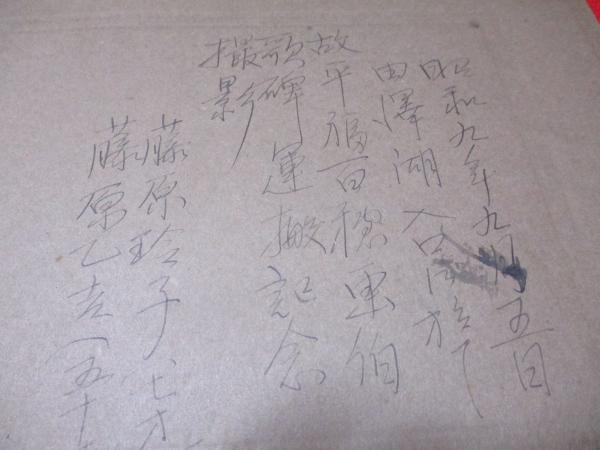 昭和九年九月五日
田澤湖 於て
故平福百穂画伯
歌碑運搬記念
撮影
藤原玲子(七才
藤原乙吉(五十